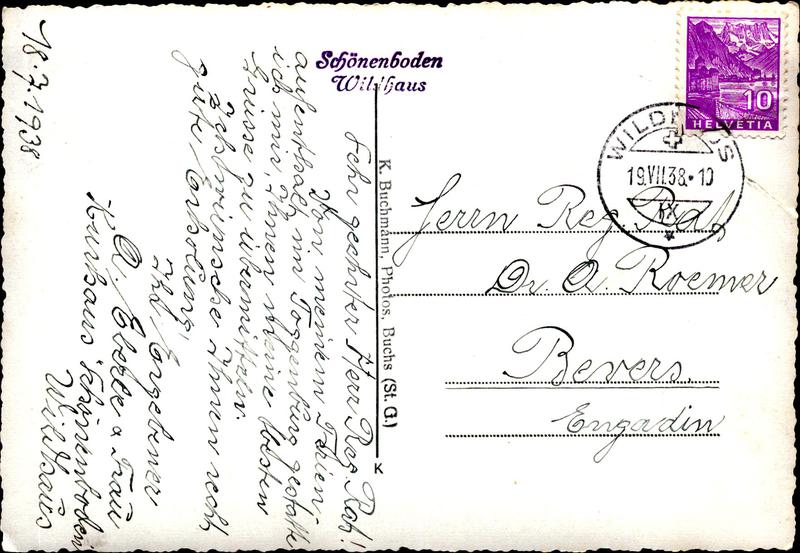 18.7.1938
Sehr geehrter Herr Reg. Rat!
Von meinem Ferien-
aufenthalt im Toggenburg gestatte
ich mir, Ihnen meine besten
Grüsse zu übermitteln.
Ich wünsche Ihnen recht
gute Erholung!
Ihr Ergebener
A. Eberle & Frau
Kurhaus Schönenboden
Wildhaus
Schönenboden
Wildhaus
K. Buchmann, Photos, Buchs (St. G.)
K
HELVETIA
10
WILDHAUS
19.VII.38.-10
Herrn Reg. Rat
Dr. A. Roemer
Bevers.
Engadin